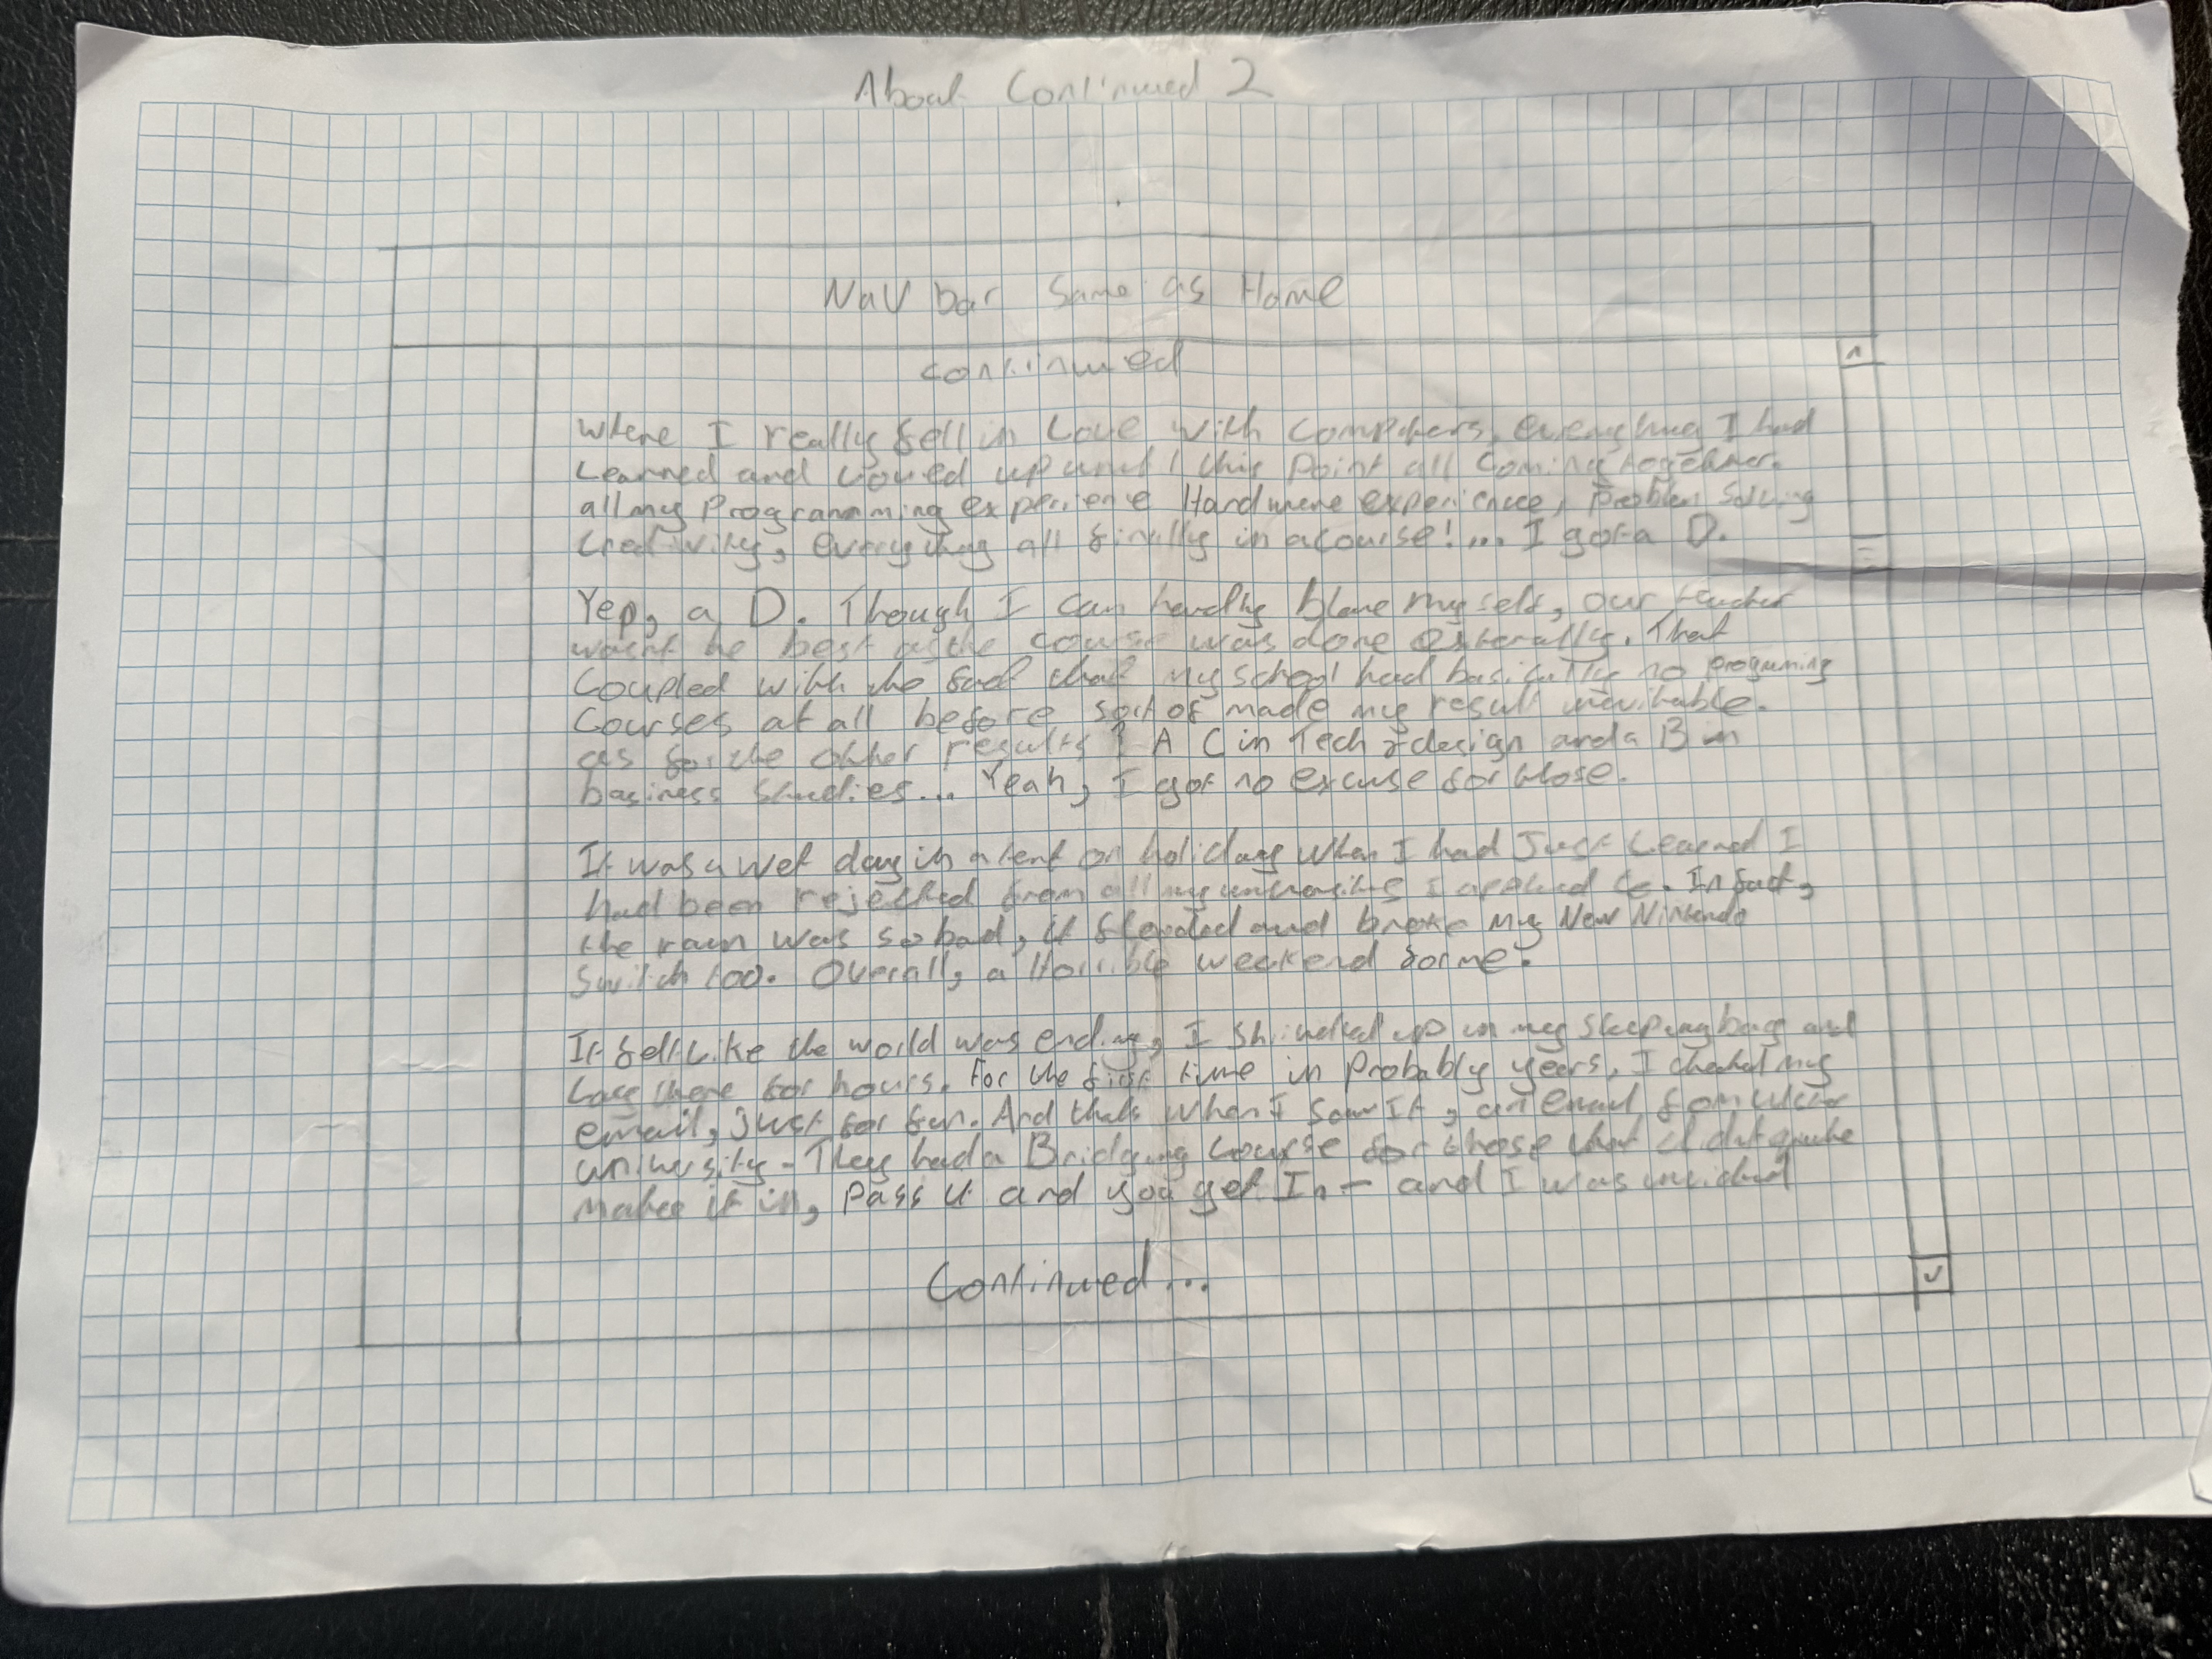 About Continued 2
Nav bar same as Home
continued
Where I really fell in Love with Computers, everything I had
Learned and Loved up until this point all coming together.
all my Programming experience Hardware experience, problem solving
creativity, everything all finally in a course!... I got a D.
Yep, a D. Though I can hardly blame myself, our teacher
wasnt he best as the course was done externally. That
Coupled with the fact that my school had basically no programming
Courses at all before sort of made my result inevitable.
as for the other results A C in Tech & design and a B in
business studies... Yeah, I got no excuse for those.
It was a wet day in a tent on holiday when I had Just Learned I
had been rejected from all my I applied to. In fact,
the rain was so bad, it flooded and broke my New Nintendo
Switch too. Overall, a Horrible weekend for me.
It felt Like the world was ending, I up in my sleeping bag and
Lay there for hours. For the first time in Probably years, I checked my
email, just for fun. And thats when I saw It, an email from
university - They had a Bridging course for those that didnt quite
make it in, pass it and you get In - and I was
Continued...